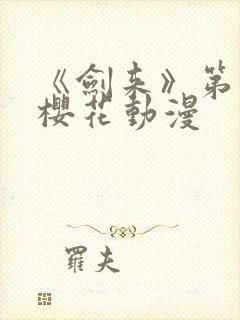 《劍來》第
櫻花動漫
羅夫